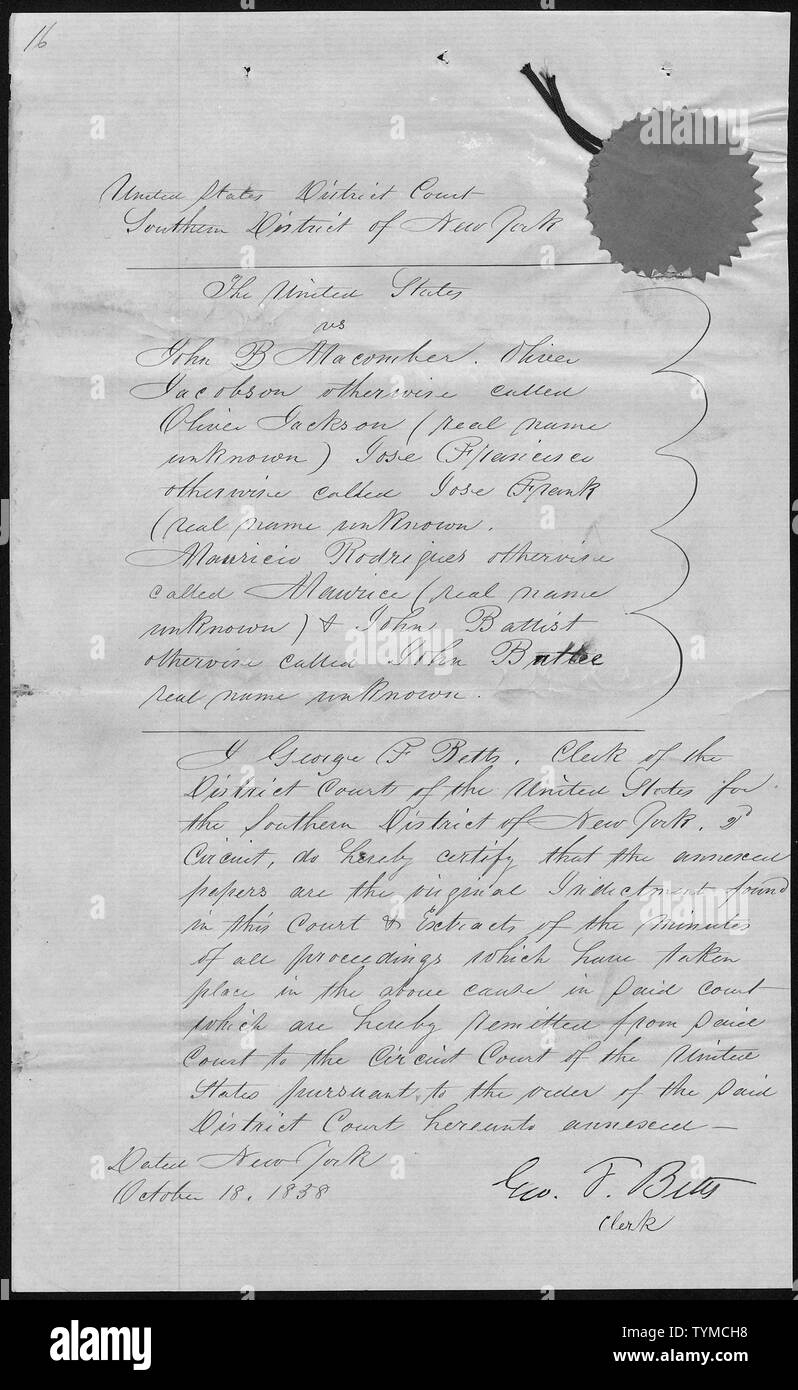 16
United States District Court
Southern District of New York
The United States
vs
John B Macomber. Oliver
Jacobson otherwise called
Oliver Jackson (real name
unknown) Jose Francisco
otherwise called Jose Frank
(real name unknown.
Mauricio Rodrigues otherwise
called Maurice (real name
unknown) & John Battist
otherwise called John
real name unknown.
I George F Betts, Clerk of the
District Court of the United States for
the Southern District of New York, 2d
Circuit, do hereby certify that the annexed
papers are the original Indictment found
in this Court & Extracts of the Minutes
of all proceedings which have taken
place in the above cause in said court
which are hereby remitted from said
Court to the Circuit Court of the United
States pursuant to the order of the said
District Court hereunto annexed —
Dated New York
October 18, 1858
Geo. F. Betts
Clerk
alamy
alamy
Image ID: TYMCH8
www.alamy.com